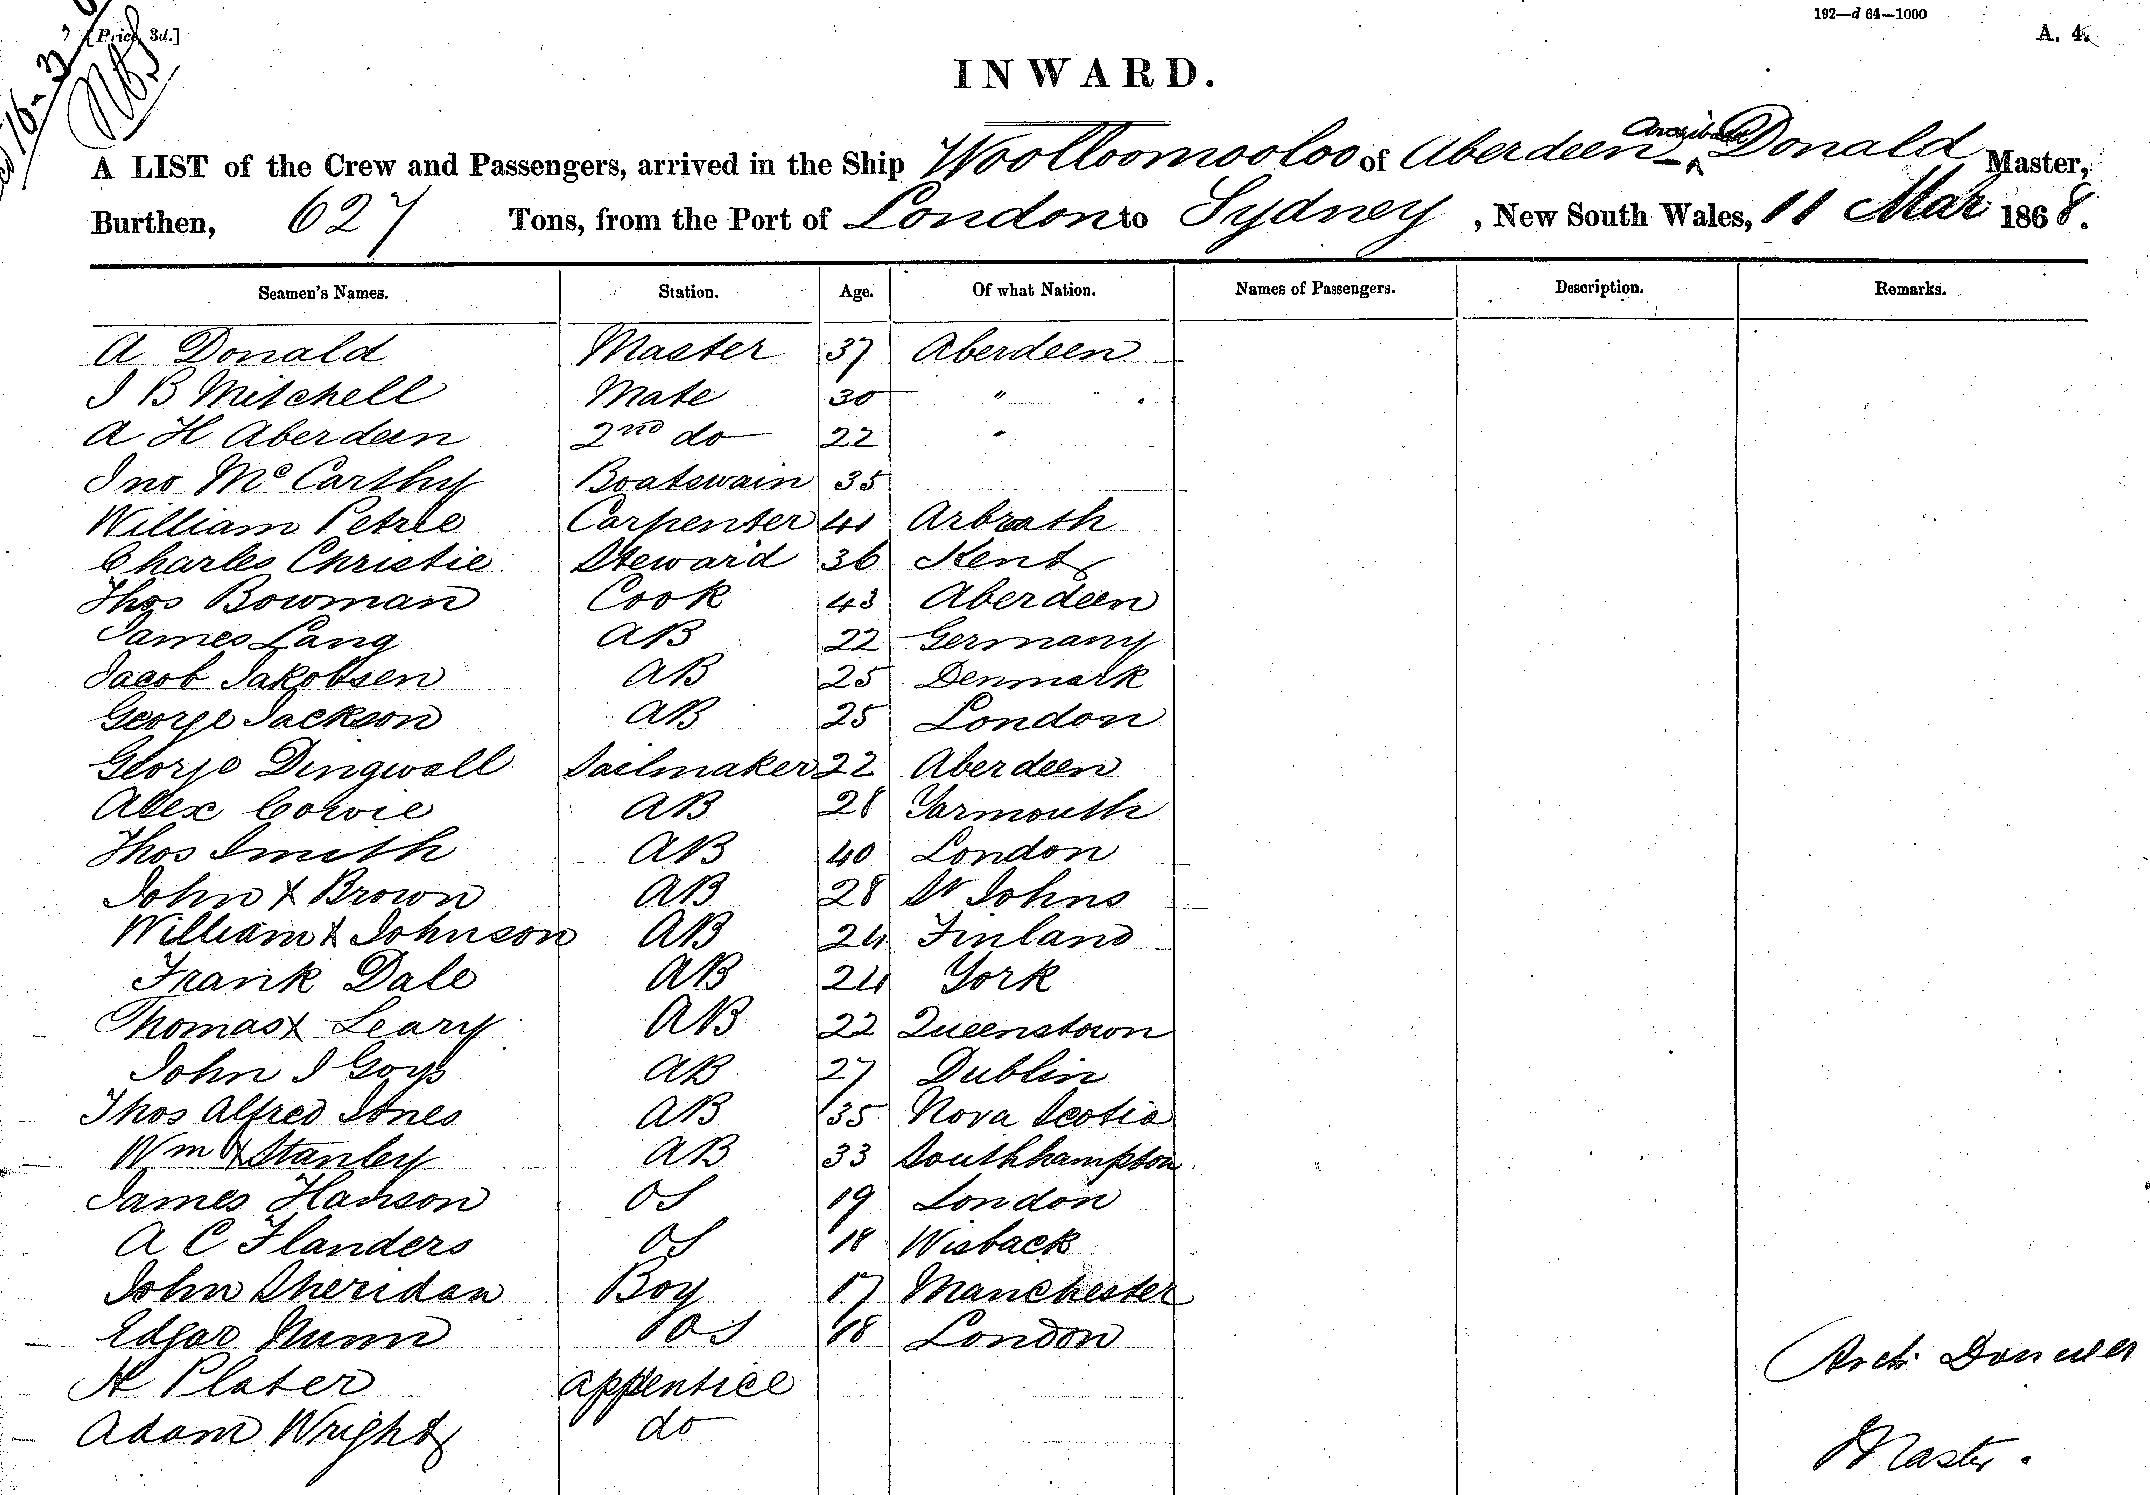 192—d 64—1000
[Price 3d.]
A. 4.
INWARD.
A LIST of the Crew and Passengers, arrived in the Ship Woolloomooloo of Aberdeen - Donald Master,
Burthen, 627 Tons, from the Port of London to Sydney, New South Wales, 11 Mar 1868.
Seamen's Names. Station. Age. Of what Nation. Names of Passengers. Description. Remarks.
A Donald Master 37 Aberdeen
J B Mitchell Mate 30 "
A H Aberdein 2nd do 22 "
Jno McCarthy Boatswain 35
William Petrie Carpenter 41 Arbroath
Charles Christie Steward 36 Kent
Thos Bowman Cook 43 Aberdeen
James Lang AB 22 Germany
Jacob Jakobsen AB 25 Denmark
George Jackson AB 25 London
George Dingwall Sailmaker 22 Aberdeen
Alex Cowie AB 28 Yarmouth
Thos Smith AB 40 London
John X Brown AB 28 St Johns
William X Johnson AB 24 Finland
Frank Dale AB 24 York
Thomas X Leary AB 22 Queenstown
John J AB 27 Dublin
Thos Alfred Jones AB 35 Nova Scotia
Wm X Stanley AB 33 Southhampton
James Hanson OS 19 London
A C Flanders OS 18 Wisback
John Sheridan Boy 17 Manchester
Edgar Nunn OS 18 London
H Plater appentice
Adam Wright do
Arch. Donald
Master.